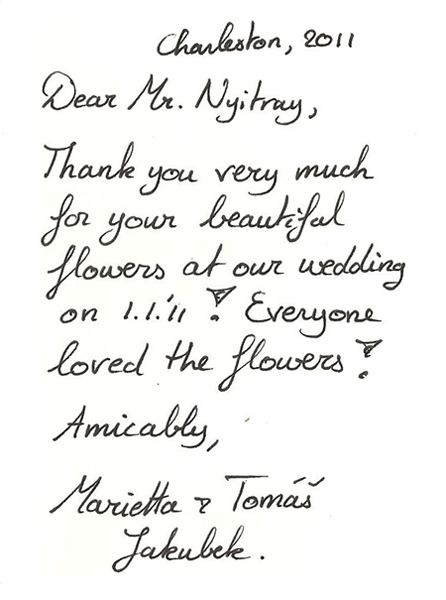 Charleston, 2011
Dear Mr. Nyitray,
Thank you very much
for your beautiful
flowers at our wedding
on 1.1.'11! Everyone
loved the flowers!
Amicably,
Marietta & Tomáš
Jakubek.